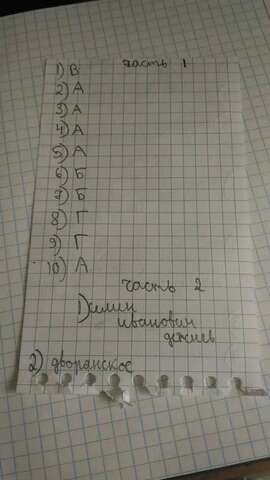 часть 1
1) В
2) А
3) А
4) А
5) А
6) Б
7) Б
8) Г
9) Г
10) А
часть 2
1) илич
иванович
2) дворанское